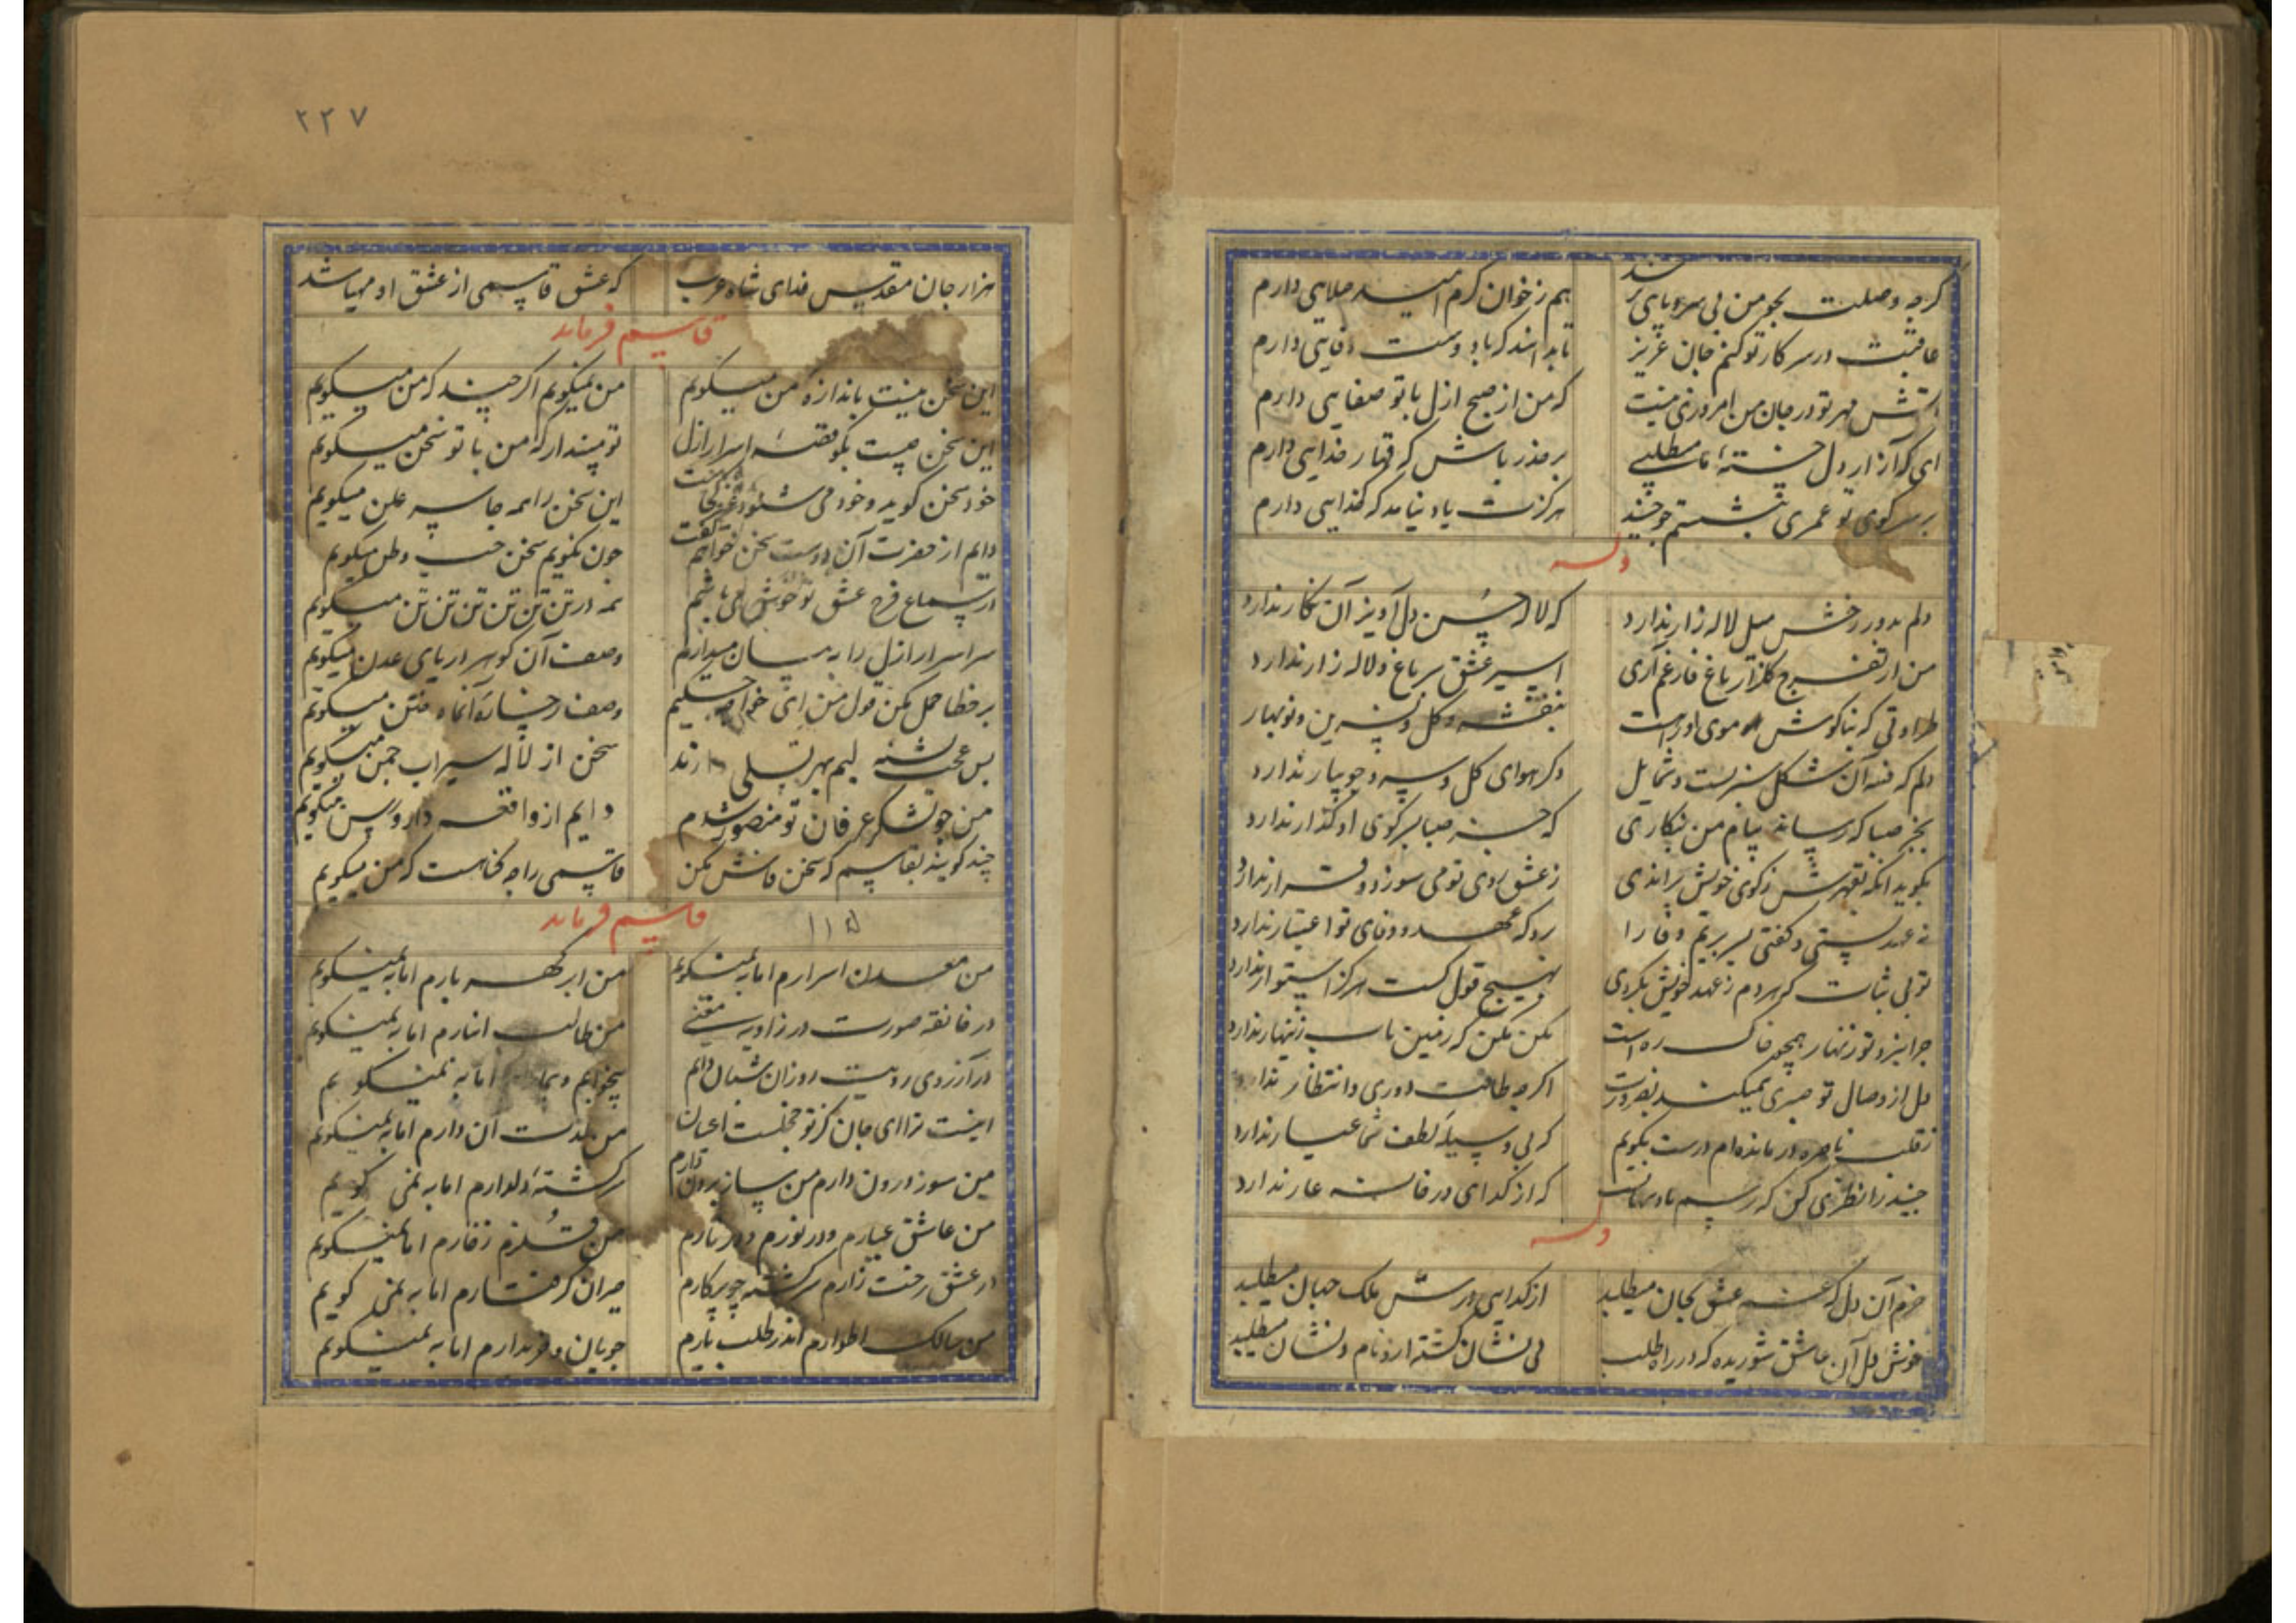 گرچه وصلت بجو من بی سر و پای نرسد هم ز خوان کرم امید صلایی دارم
عاقبت در سر کار تو کنم جان عزیز تا بدانند که با دوست وفایی دارم
آتش مهر تو در جان من امروزی نیست که من از صبح ازل با تو صفایی دارم
ای که آزار دل خسته ما میطلبی بر حذر باش که قهار خدایی دارم
بر سر کوی تو عمری بنشستم جو جنید هرگزت یاد نیامد که گدایی دارم
وله
دلم بدور رخش میل لاله زار ندارد که لاله حسن دل آویز آن نگار ندارد
من از تفرج گلزار باغ فارغم آری اسیر عشق سر باغ و لاله زار ندارد
طراوتی که بناگوش و موی او راست بنفشه و گل و نسرین و نوبهار
دلم که فتنه آن شکل سرست و شمایل دگر هوای گل و سرو جویبار ندارد
بجز صبا که رساند پیام من بنگاری که جز صبا بسر کوی او گذار ندارد
بگوید آنکه بقهرش ز کوی خویش براندی ز عشق روی تو می سوزد و قرار ندارد
نه عهد بستی و گفتی بسر بریم وفا را برو که عهد و وفای تو اعتبار ندارد
تو بی ثبات که هر دم ز عهد خویش بگردی بهیچ قول کست هرگز استوار ندارد
مکن مکن که زمین تاب زینهار ندارد
دل از وصال تو صبری نمیکند بضرورت اگرچه طاقت دوری و انتظار ندارد
ز قلب ناسره در مانده ام درست بگویم که بی وسیله لطف شما عیار ندارد
جنید را نظری کن که رسم پادشهانست که از گدای در خانه عار ندارد
وله
خرم آن دل که غم عشق بجان میطلبد از گدایی درش ملک جهان میطلبد
خوش دل آن عاشق شوریده که در راه طلب بی نشان گشته ازو نام و نشان میطلبد
٢٢٧
هزار جان مقدس فدای شاه عرب که عشق قاسمی از عشق او مهیا شد
قاسم فرماید
این سخن نیست باندازه که من میگویم من نمیگویم اگر چند که من میگویم
این سخن چیست بگو قصه اسرار ازل تو مپندار که من با تو سخن میگویم
خود سخن گوید و خود می شنود این سخن را همه جا سر علن میگویم
دایم از حضرت آن دوست سخن خواهم گفت چون نگویم سخن حب وطن میگویم
در سماع فرح عشق تو خوش می باشم همه در تن تن تن تن تن تن میگویم
سر اسرار ازل را به میان میدارم وصف آن گوهر دریای عدن میگویم
بر خطا حمل مکن قول من ای خواجه حکیم وصف رخساره آن ماه ختن میگویم
بس عجب تشنه لبم بهر تسلی سخن از لاله سیراب چمن میگویم
من جو در لشکر عرفان تو منصور شدم دایم از واقعه دار و رسن میگویم
چند گویند بقاسم که سخن فاش مکن قاسمی را چه گناهست که من میگویم
قاسم فرماید ١١۵
من معدن اسرارم اما به نمیگویم من ابر گهر بارم اما به نمیگویم
در خانقه صورت در زاویه معنی من طالب انبارم اما به نمیگویم
در آرزوی رویت روزان شبان دایم بیخوابم و اما به نمیگویم
اینست ترا ای جان کز تو خجلست اعیان من آن دارم اما به نمیگویم
من سوز درون دارم من ساز برون دارم سرگشته دلدارم اما به نمی گویم
من عاشق عیارم در نورم و در نارم من قلزم زخارم اما به نمیگویم
در عشق رخت زارم سرگشته چو پرگارم حیران گرفتارم اما به نمی گویم
من سالک اطوارم اندر طلب یارم جویان خریدارم اما به نمیگویم